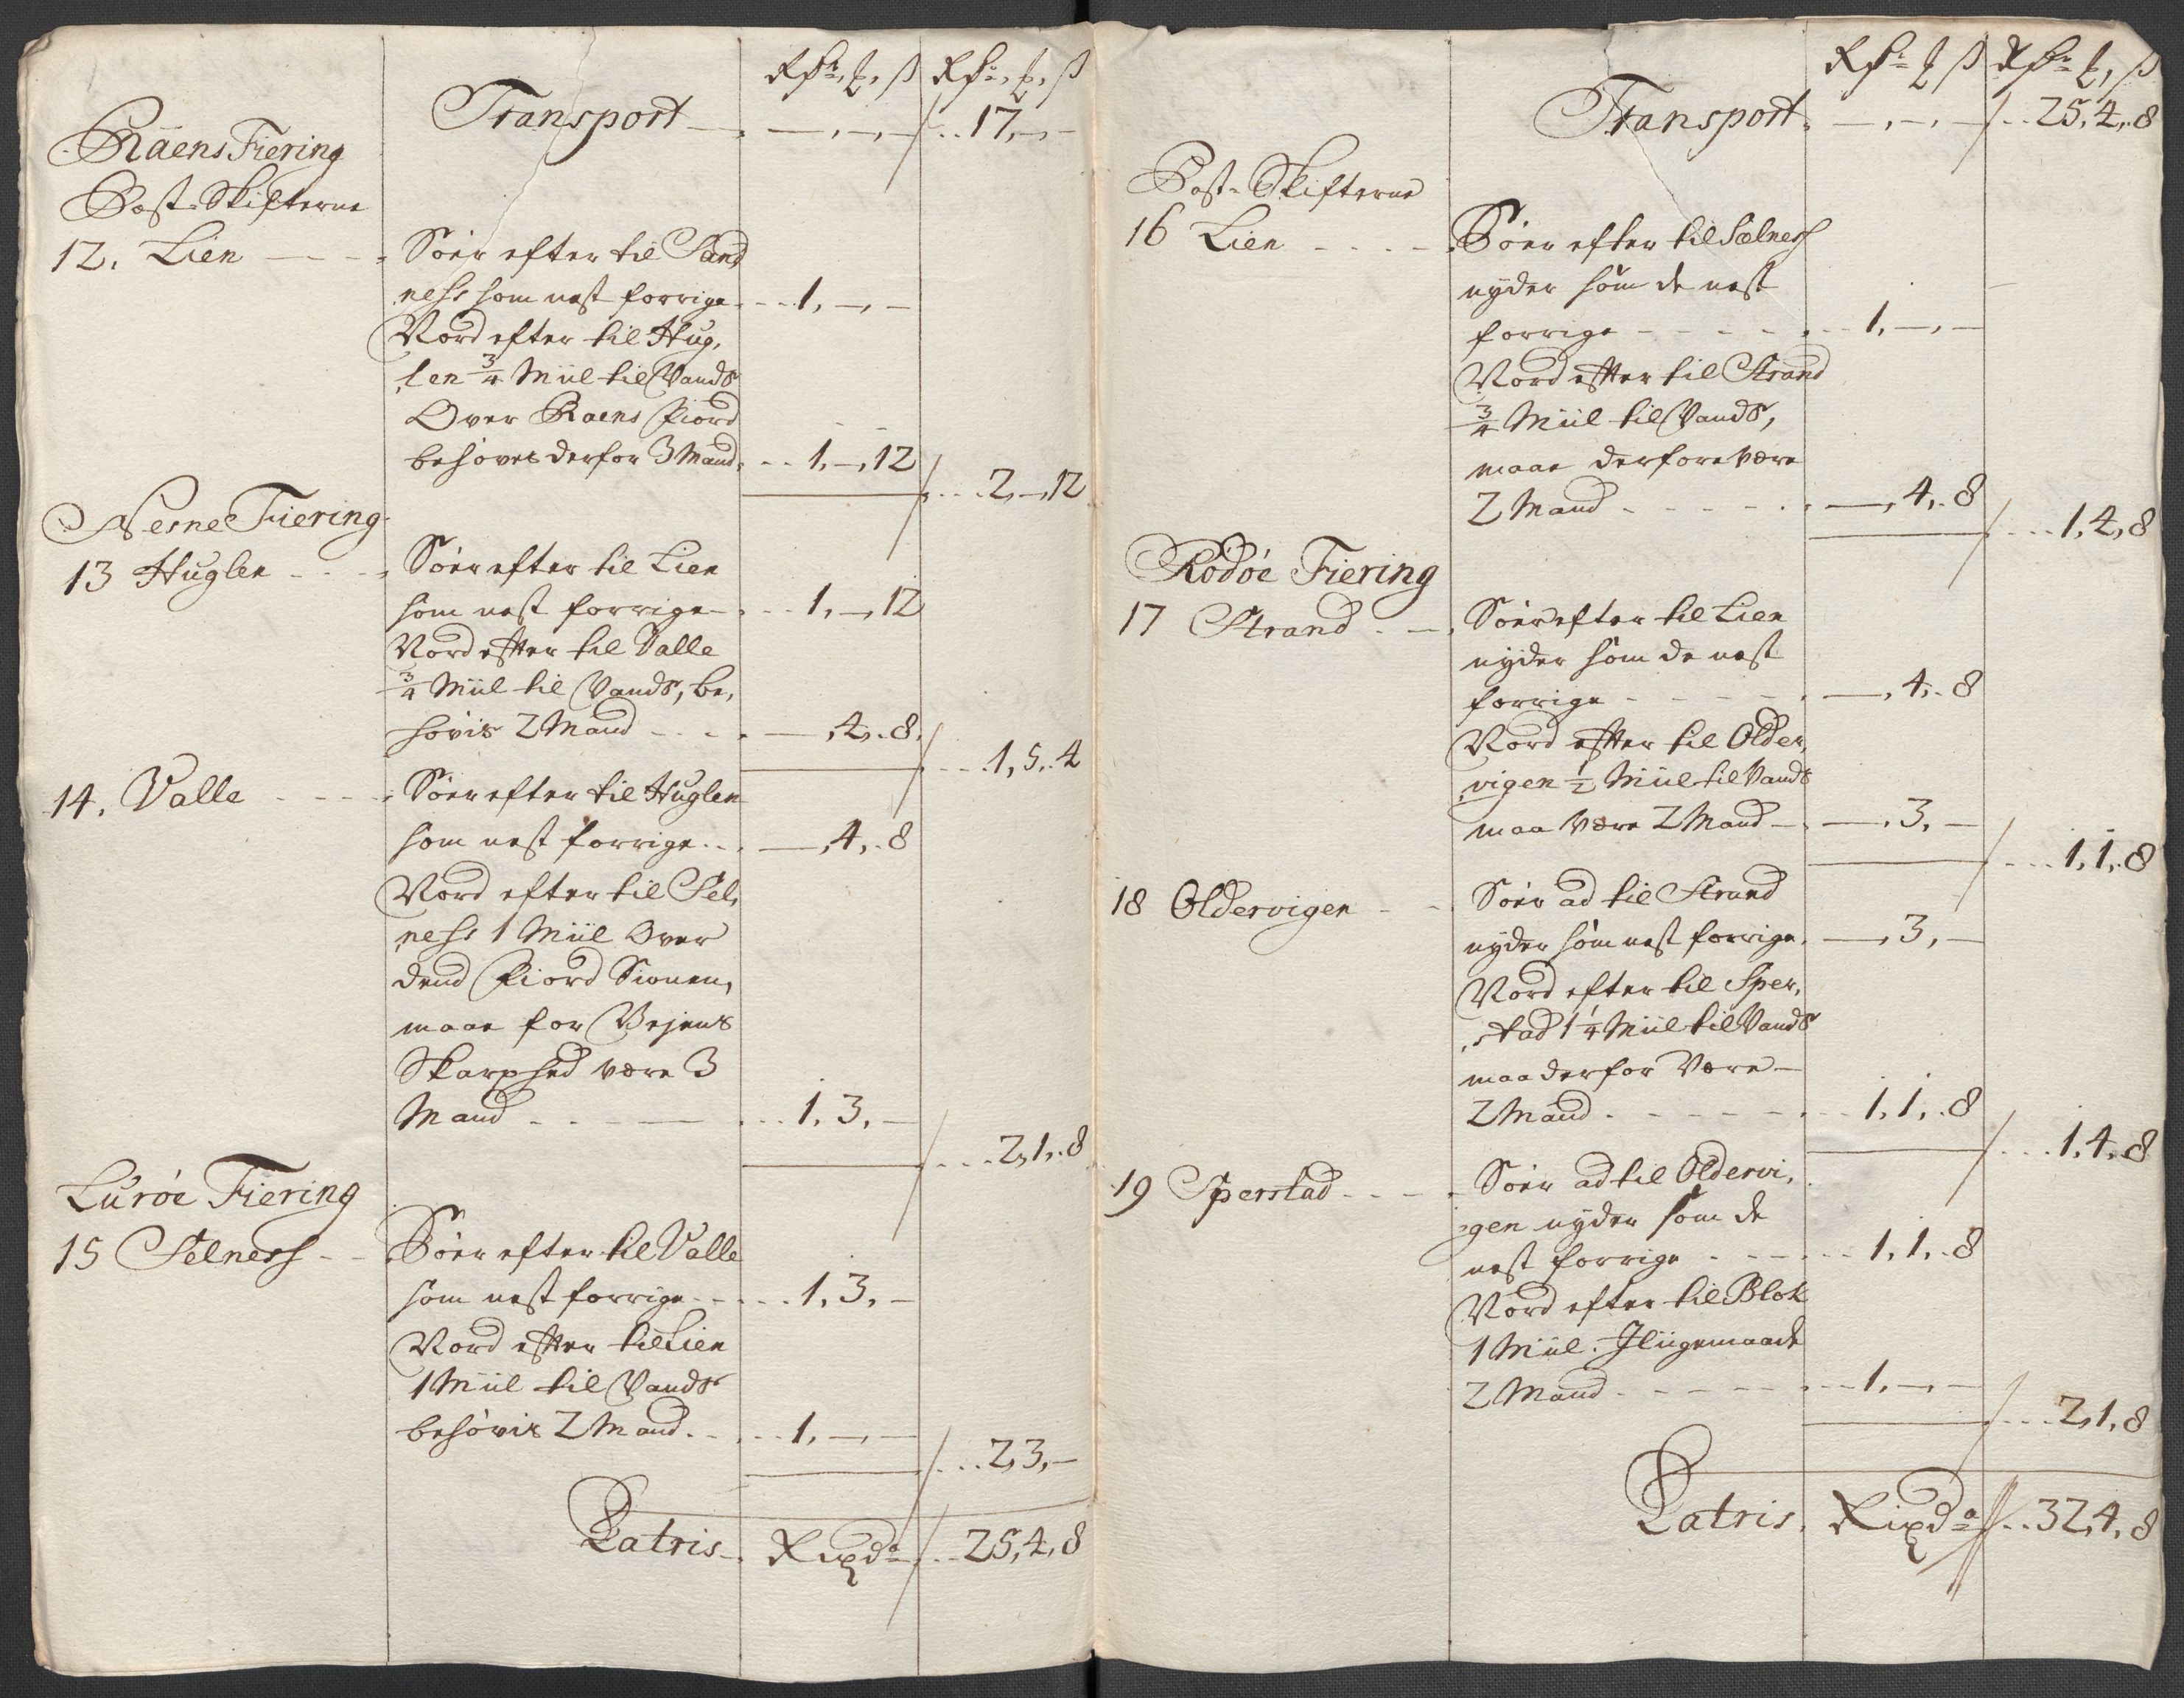 Rdr, ₰, ß Rdr, ₰, ß
Transport — . —, —, — /.. 17, —, —
Raens Fiering
Post-Skifterne
12. Lien — — Sör efter til Sand
ness som nest forrige - - 1, —, —
Nord efter til Hug,
len 3/4 Miil til Vands
Over Raens Fiord
behöves derfor 3 Mand. - - 1, —, 12
/.... 2, —, 12
Nesne Fiering
13 Huglen - - - Sör efter til Lien
som nest forrige — . .. 1, —, 12
Nord efter til Valle
3/4 Miil til Vands, be,
hövis 2 Mand - - - . —, 4, . 8.
/... 1, 5, . 4
14. Valle - - - - Sör efter til Huglen
som nest forrige . . . —, 4, . 8
Nord efter til Sel,
ness 1 Miil Over
dend Fiord Sionen,
maae for Vejens
Skarphed være 3
Mand - - - - — ... 1, 3, —
/.... 2, 1, . 8
Luröe Fiering
15 Selness - - Sör efter til Valle
som nest forrige - - ... 1, 3, —
Nord efter til Lien
1 Miil til Vands
behövis 2 Mand . - . - - 1, —, —
/... 2, 3, —
Latris . Rixdr /... 25, 4, 8
Rdr ₰ ß Rdr ₰, ß
Transport . —, —, — /.. 25, 4, . 8
Post-Skifterne
16 Lien - - - - Sör efter til Selness
nyder som de nest
forrige - - - - - . .. 1, —, —
Nord efter til Strand
3/4 Miil til Vands,
maae derfore være
2 Mand - - - - - . . —, 4, . 8
/.... 1, 4, 8
Rödöe Fiering
17 Strand . — . Sör efter til Lien
nyder som de nest
forrige - - - - - . —, 4, . 8
Nord efter til Older,
vigen 1/2 Miil til Vands
maa være 2 Mand — . —, 3, —
/.... 1, 1, . 8
18 Oldervigen - - Sör ad til Strand
nyder som nest forrige . —, 3, —
Nord efter til Sper,
stad 1 1/4 Miil til Vands
maa derfor være —
2 Mand . - - - - - . . - 1, 1, . 8
/... 1, 4, . 8
19 Sperstad - - - - Sör ad til Oldervi,
gen nyder som de
nest forrige . - - - ... 1, 1, . 8
Nord efter til Blok
1 Miil. Jliigemaade
2 Mand - - - - - . - - 1, —, —
/.... 2, 1, 8
Latris . Rixdr /.. 32, 4, 8